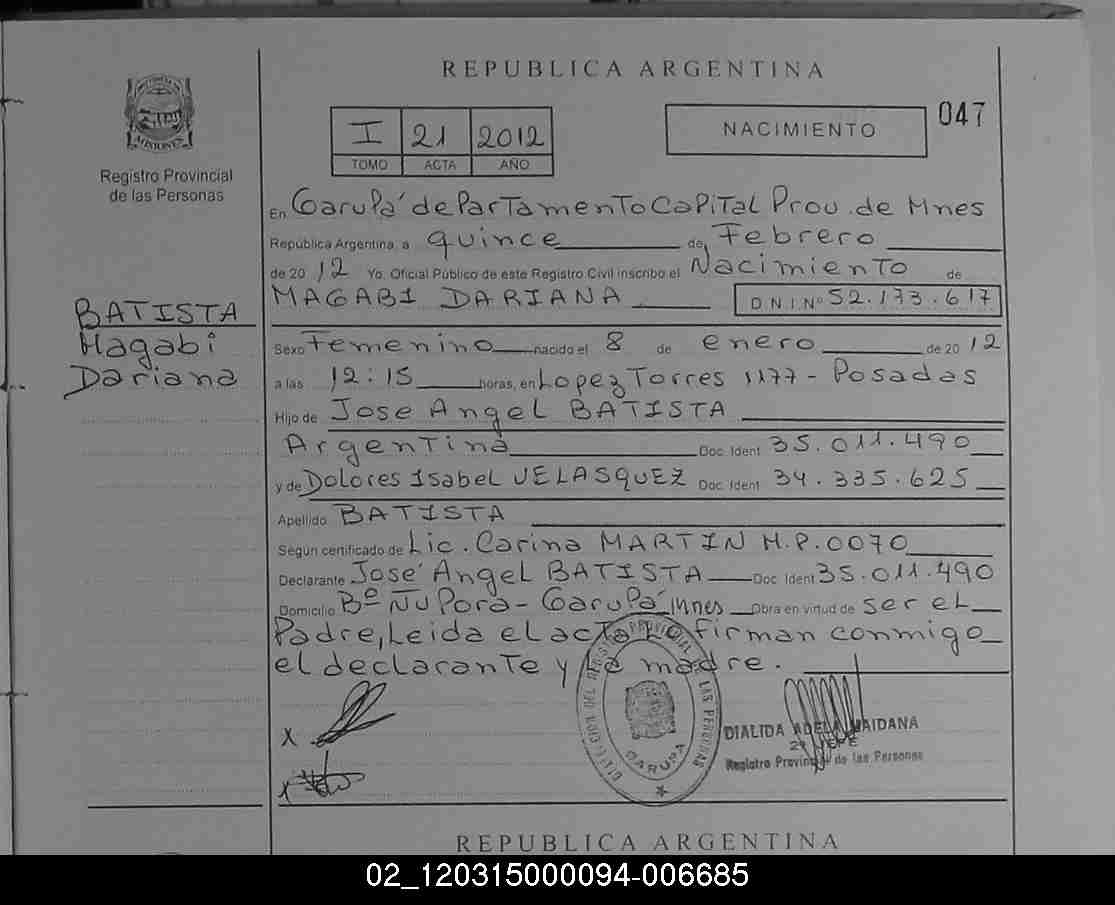 REPUBLICA ARGENTINA
047
I 21 2012
TOMO ACTA AÑO
NACIMIENTO
MISIONES
Registro Provincial
de las Personas
En Garupá departamento Capital Prov. de Mnes
República Argentina, a quince de Febrero
de 2012 Yo, Oficial Público de este Registro Civil inscribo el Nacimiento de
MAGABI DARIANA D.N.I. Nº 52.173.617
BATISTA
Magabi
Dariana
Sexo Femenino nacido el 8 de enero de 2012
a las 12:15 horas, en Lopez Torres 1177 - Posadas
Hijo de Jose Angel BATISTA
Argentina Doc. Ident 35.011.490
y de Dolores Isabel VELASQUEZ Doc. Ident 34.335.625
Apellido BATISTA
Según certificado de Lic. Carina MARTIN M.P.0070
Declarante José Angel BATISTA Doc. Ident 35.011.490
Domicilio Bº Ñu Pora - Garupá Mnes Obra en virtud de ser el
Padre, Leida el acta La firman conmigo
el declarante y La madre.
X
X
DIRECCION DEL REGISTRO PROVINCIAL DE LAS PERSONAS
GARUPA
DIALIDA ADELA MAIDANA
2º JEFE
Registro Provincial de las Personas
REPUBLICA ARGENTINA
02_120315000094-006685